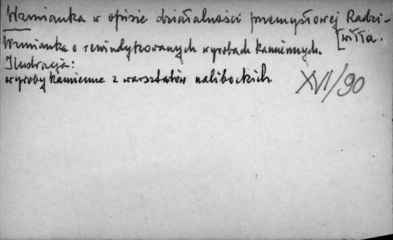 Wzmianka w opisie działalności przemysłowej Radzi-
[wiłła.
Wzmianka o rewindykowanych wyrobach kamiennych.
Ilustracja:
wyroby kamienne z warsztatów nalibockich
XVI/90